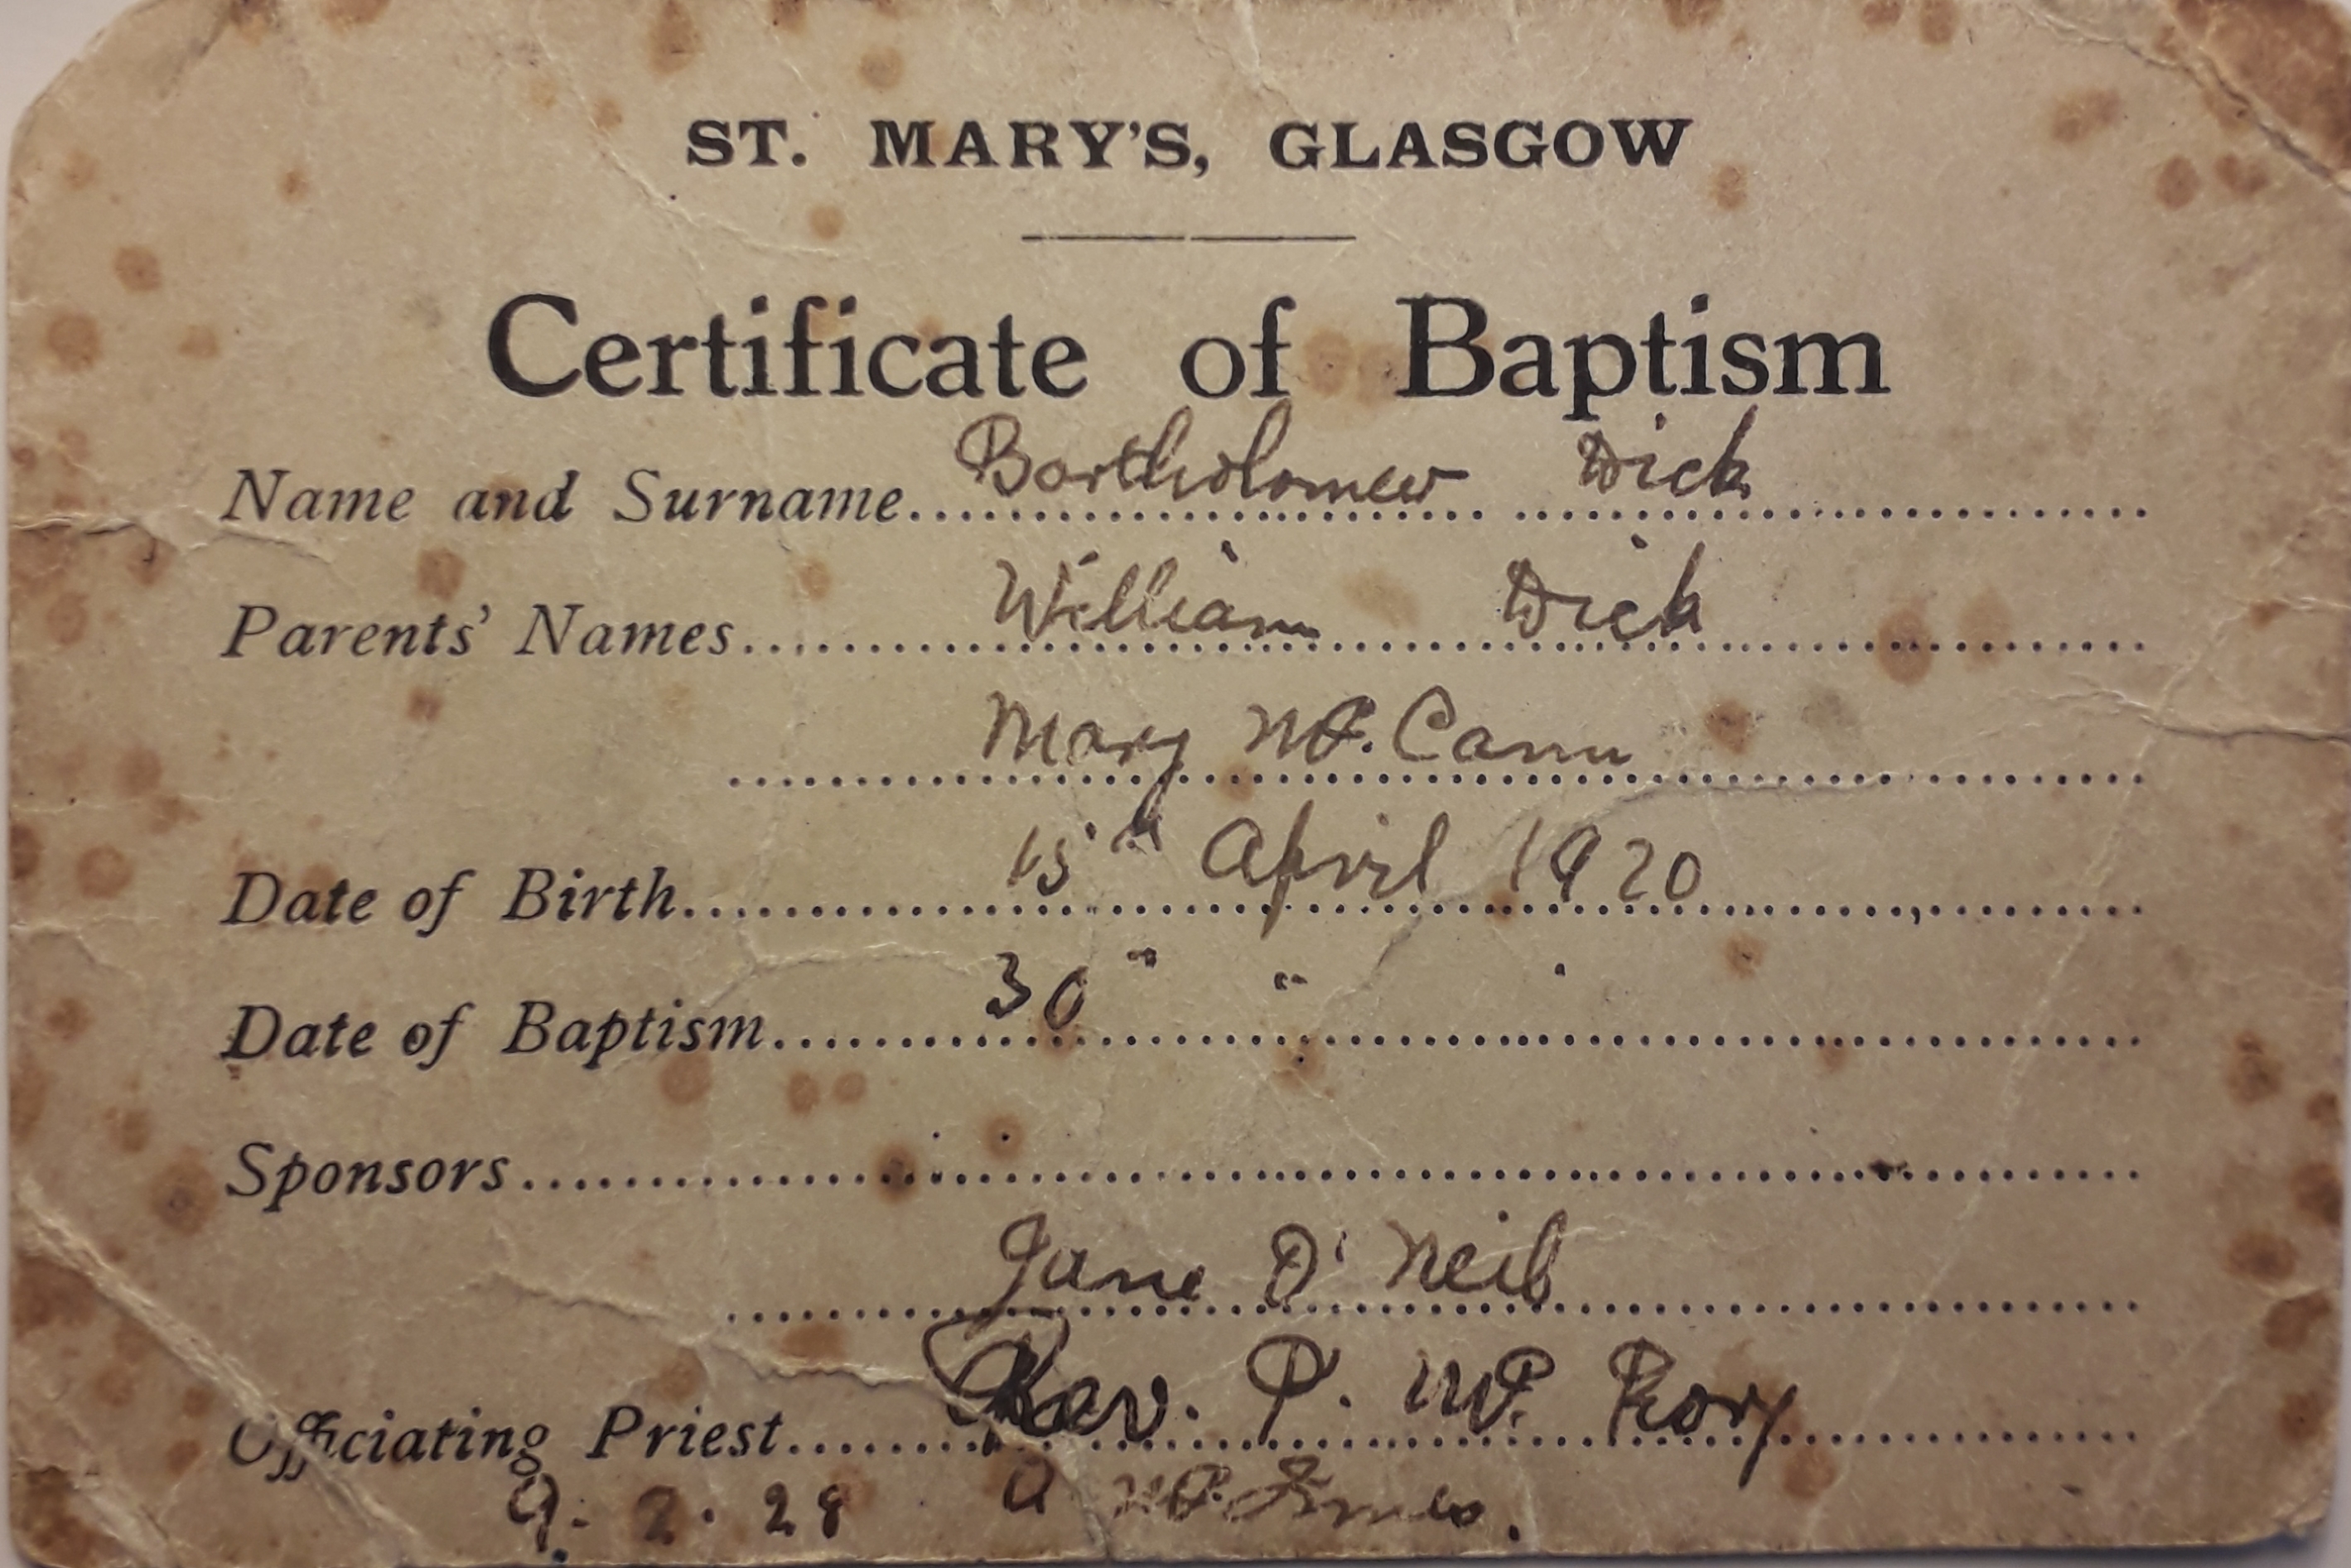 ST. MARY'S, GLASGOW
Certificate of Baptism
Name and Surname Bartholomew Dick
Parents' Names William Dick
Mary Mc. Cann
Date of Birth 15th April 1920
Date of Baptism 30 " " "
Sponsors
Jane O'Neil
Officiating Priest Rev. P. Mc Rory
9. 2. 28 A Mc.